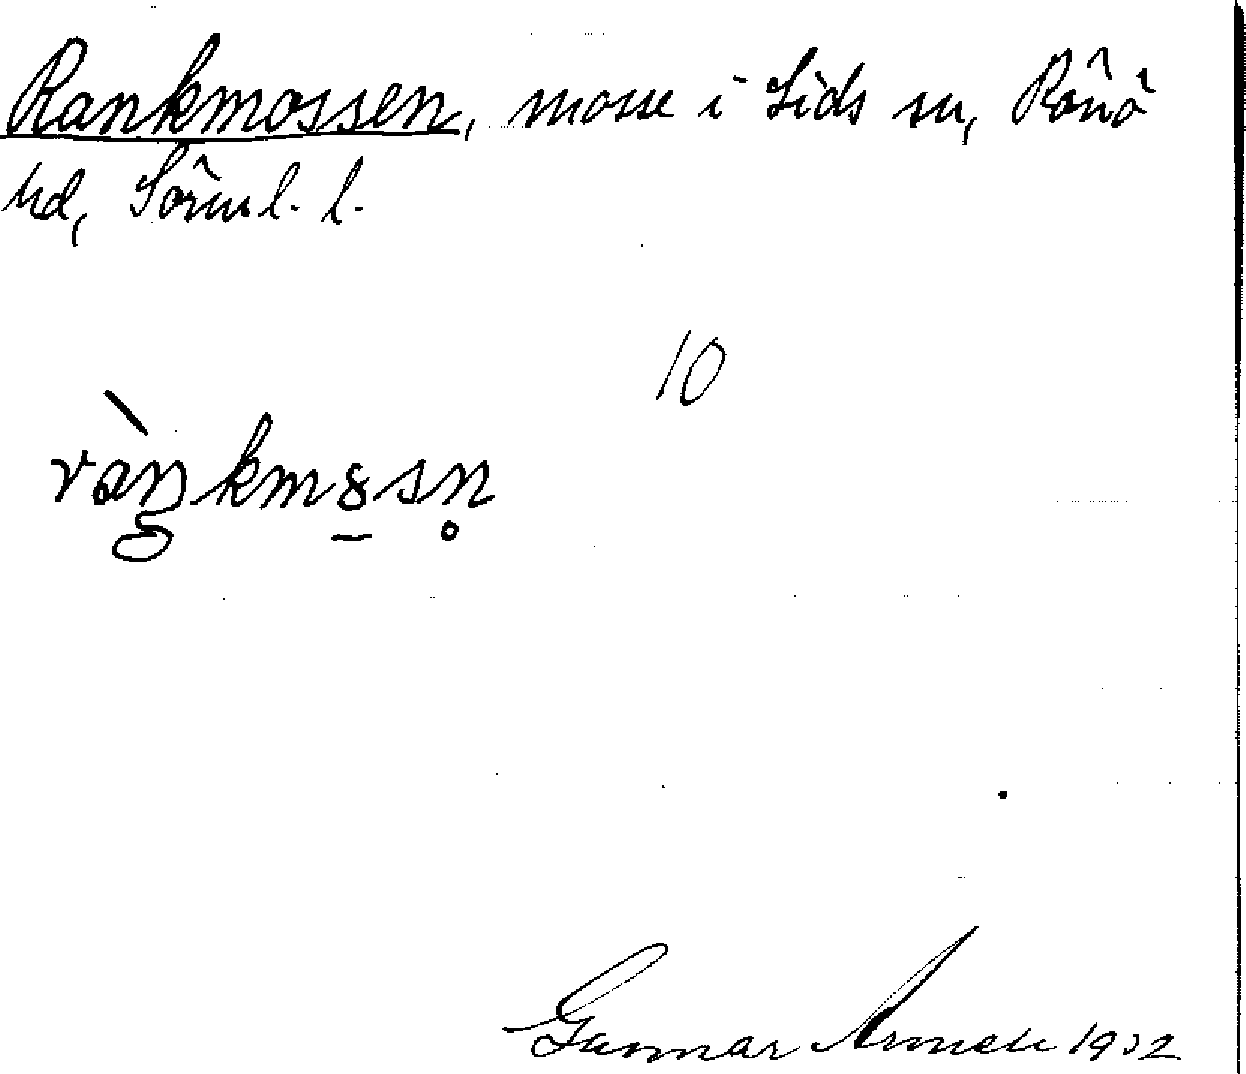 Rankmossen, mosse i Lids sn, Rönö
hd, Sörml. l.
10
ràŋkmo̱sn̥
Gunnar 1932